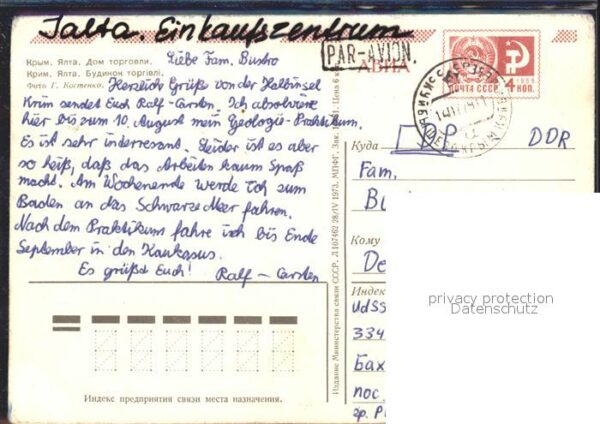 Jalta. Einkaufszentrum
Крым. Ялта. Дом торговли.
Крим. Ялта. Будинок торгівлі.
Фото Г. Костенко.
Liebe Fam. Bustro
Herzlich Grüße von der Halbinsel
Krim sendet Euch Ralf-Carsten. Ich absolviere
hier bis zum 10. August mein Geologie-Praktikum.
Es ist sehr interessant. Leider ist es aber
so heiß, daß das Arbeiten kaum Spaß
macht. Am Wochenende werde ich zum
Baden an das Schwarze Meer fahren.
Nach dem Praktikum fahre ich bis Ende
September in den Kaukasus.
Es grüßt Euch! Ralf-Carsten
Индекс предприятия связи места назначения.
Издание Министерства связи СССР. Л 167462 28/IV 1973. МПФГ. Зак. Цена 6 к
PAR-AVION.
АВИА
ПОЧТА СССР 4 КОП.
1966
Куда
DDR
Fam.
Bu
Кому
De
Индекс
UdSS
334
Бах
пос.
privacy protection
Datenschutz